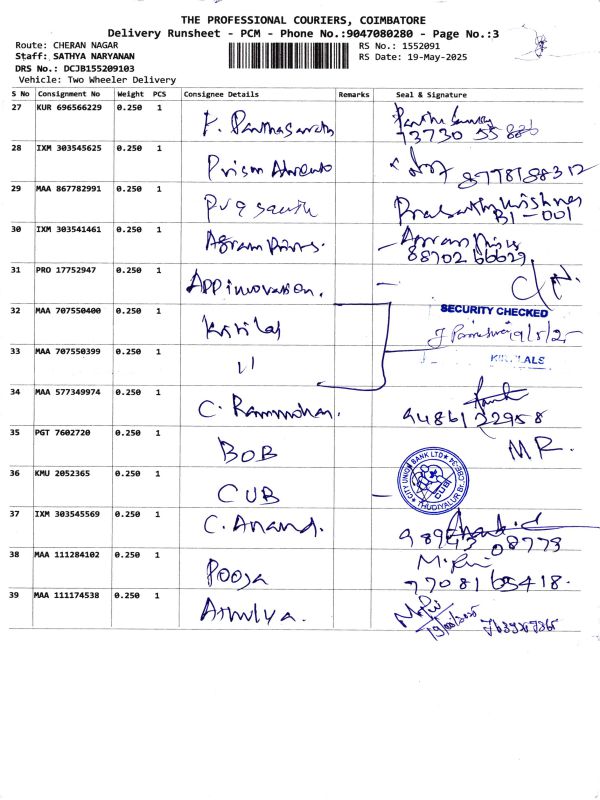 THE PROFESSIONAL COURIERS, COIMBATORE
Delivery Runsheet - PCM - Phone No.:9047080280 - Page No.:3
Route: CHERAN NAGAR
RS No.: 1552091
Staff: SATHYA NARYANAN
RS Date: 19-May-2025
DRS No.: DCJB155209103
Vehicle: Two Wheeler Delivery
S No Consignment No Weight PCS Consignee Details Remarks Seal & Signature
27 KUR 696566229 0.250 1
73730
28 IXM 303545625 0.250 1 Prism
29 MAA 867782991 0.250 1
B1-001
30 IXM 303541461 0.250 1 Agram
31 PRO 17752947 0.250 1 APP innovation.
32 MAA 707550400 0.250 1 Kirtilal SECURITY CHECKED
33 MAA 707550399 0.250 1 11
34 MAA 577349974 0.250 1 C. Rammohan.
94861 22958
35 PGT 7602720 0.250 1 BOB M R.
36 KMU 2052365 0.250 1 CUB CITY UNION BANK LTD THUDIYALUR BR. CBE-34 CUB
37 IXM 303545569 0.250 1 C. Anand.
08773
38 MAA 111284102 0.250 1 Pooja
39 MAA 111174538 0.250 1